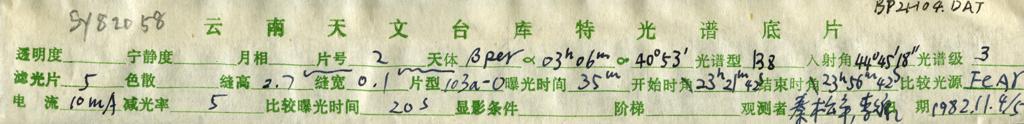 SY82058
BP2H04.DAT
云南天文台库特光谱底片
透明度 宁静度 月相 片号 2 天体 βper α 03ʰ06ᵐ δ 40°53′ 光谱型 B8 入射角 44°45′18″ 光谱级 3
滤光片 5 色散 缝高 2.7 缝宽 0.1 片型 103a-O 曝光时间 35ᵐ 开始时角 23ʰ21ᵐ42ˢ 结束时角 23ʰ56ᵐ42ˢ 比较光源 FeAr
电流 10mA 减光率 5 比较曝光时间 20s 显影条件 阶梯 观测者 期 1982.11.4/5